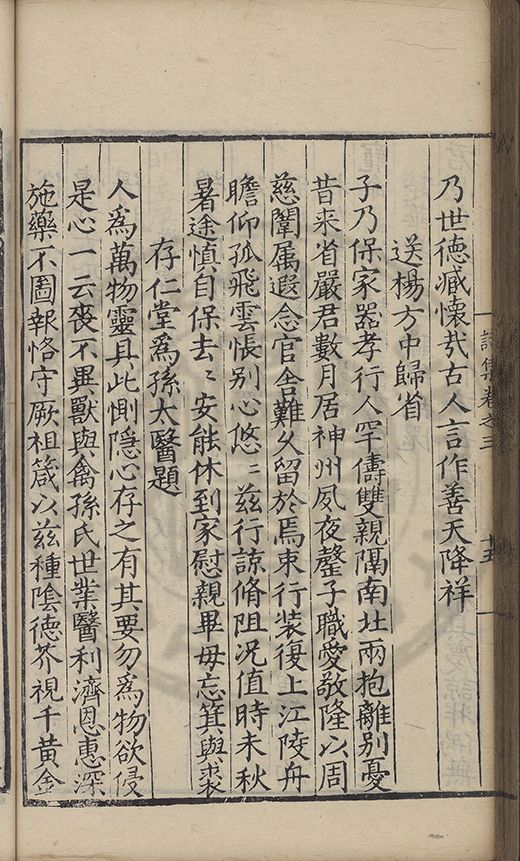 詩集卷之三
十五
乃世德臧懷哉古人言作善天降祥
送楊方中歸省
子乃保家器孝行人罕儔雙親隔南北兩抱離別憂
昔来省嚴君數月居神州夙夜罄子職愛敬隆以周
慈闈属遐念官舍難久留於焉束行装復上江陵舟
瞻仰孤飛雲悵别心悠〻茲行諒脩阻况值時未秋
暑途慎自保去〻安能休到家慰親畢毋忘箕與裘
存仁堂爲孫大醫題
人爲萬物靈具此惻隐心存之有其要勿爲物欲侵
是心一云喪不異獸與禽孫氏世業醫利濟恩惠深
施藥不圖報恪守厥祖箴以兹種陰徳芥視千黄金